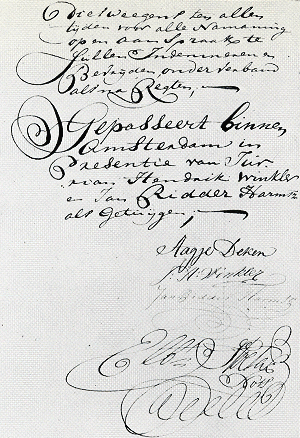 Dies weegens ten allen
tyden voor alle Namaning
op en aanspraak te
sullen Indemneeren en
Bevryden onder verband
als na Regten,
Gepasseert binnen
Amsterdam in
Presentie van Jur-
rian Hendrik Winkler
en Jan Ridder Harmsz
als Getuygen,
Aagje Deken
J H: Winkler
Jan Ridder Harmsz